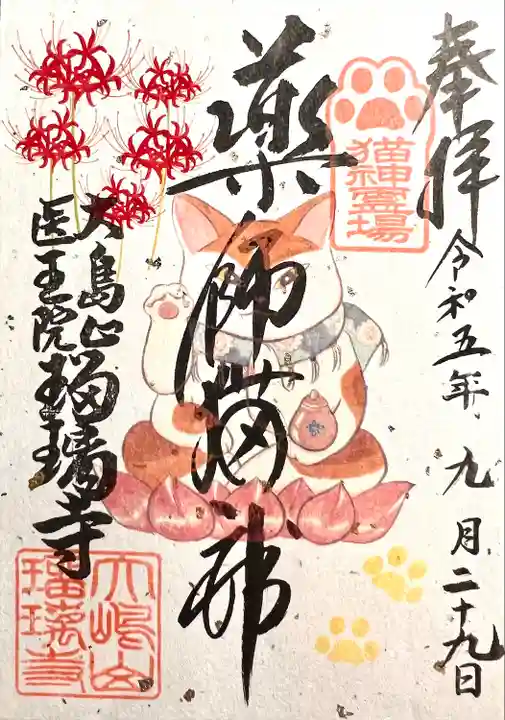 奉拝
令和五年九月二十九日
猫神霊場
薬師猫神
大島山
医王院
瑠璃寺
大嶋山
瑠璃寺